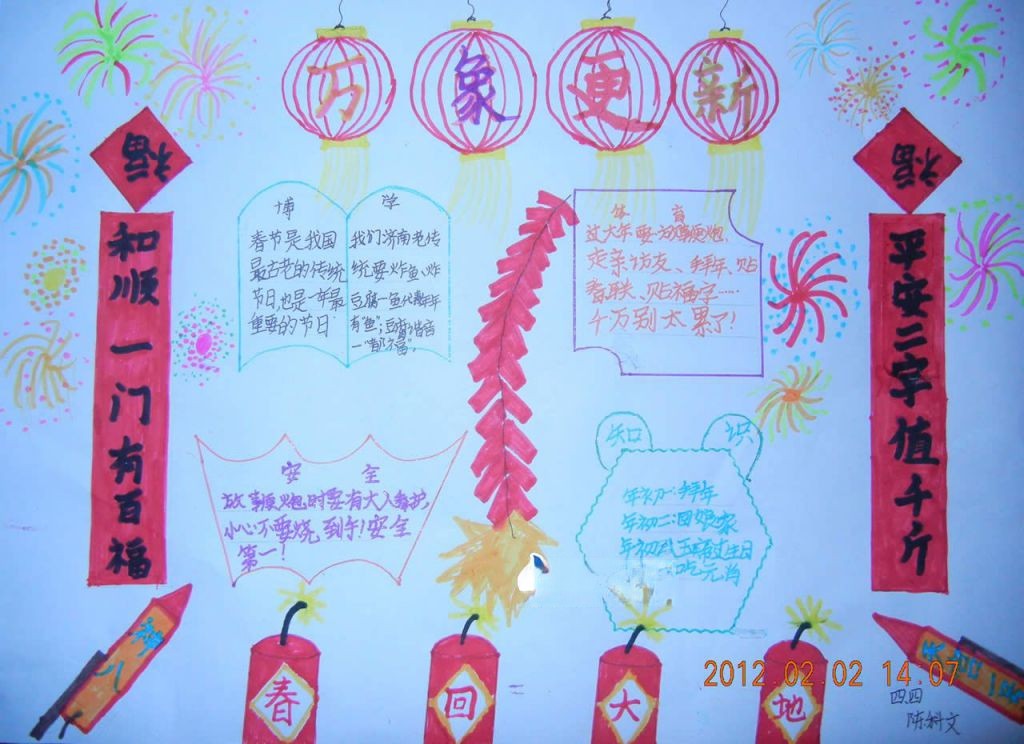 万象更新
福
福
和顺一门有百福
平安二字值千斤
博学
春节是我国
最古老的传统
节日,也是一年最
重要的节日
我们济南老传
统要炸鱼、炸
豆腐一鱼代表年年
有“鱼”;豆腐谐音
一“都福”。
体育
过大年要一放鞭炮、
走亲访友、拜年、贴
春联、贴福字……
千万别太累了!
安全
放鞭炮时要有大人看护,
小心不要烧到手!安全
第一!
知识
年初一:拜年
年初二:回娘家
吃元肖
神八
春回大地
2012.02.02 14:07
四.四
陈科文